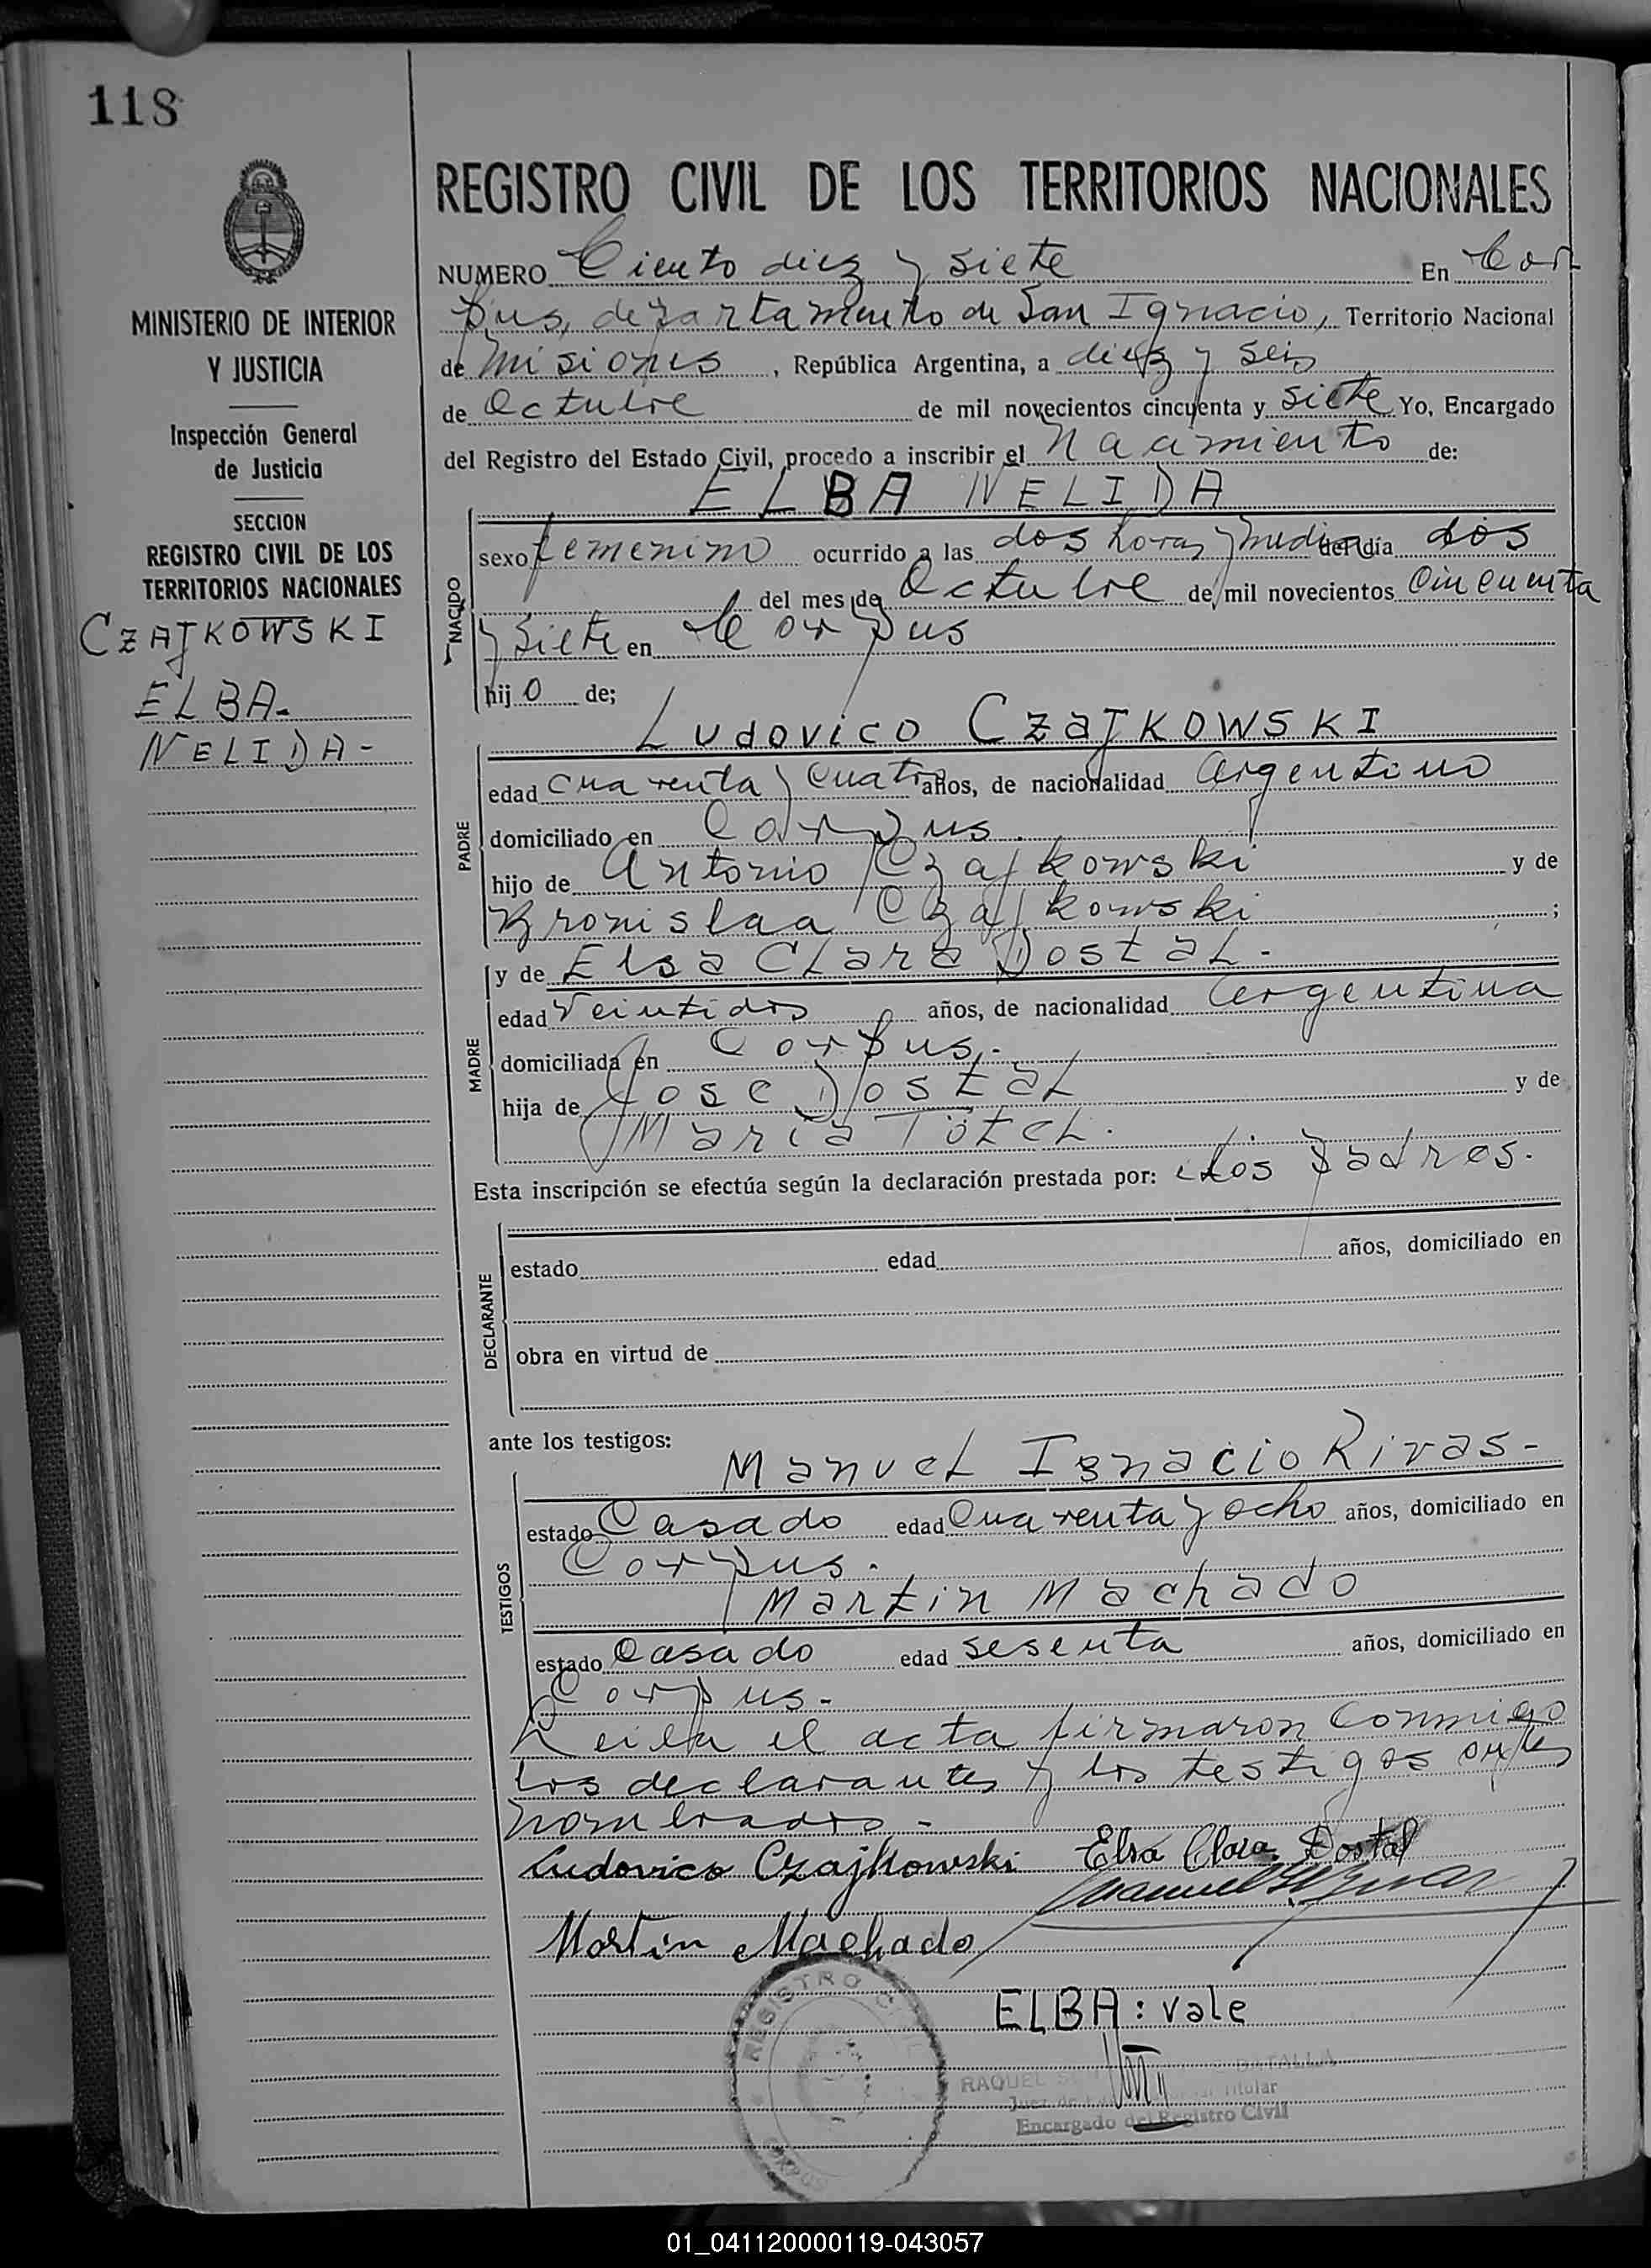 118
MINISTERIO DE INTERIOR
Y JUSTICIA
Inspección General
de Justicia
SECCION
REGISTRO CIVIL DE LOS
TERRITORIOS NACIONALES
CZAJKOWSKI
ELBA.
NELIDA-
REGISTRO CIVIL DE LOS TERRITORIOS NACIONALES
NUMERO Ciento diez y siete En Cor
pus, departamento de San Ignacio, Territorio Nacional
de Misiones, República Argentina, a diez y seis
de Octubre de mil novecientos cincuenta y siete Yo, Encargado
del Registro del Estado Civil, procedo a inscribir el Nacimiento de:
ELBA NELIDA
NACIDO
sexo femenino ocurrido a las dos horas y media del día dos
del mes de Octubre de mil novecientos Cincuenta
y Siete en Corpus
hijo de;
Ludovico CzaJKOWSKI
PADRE
edad Cuarenta y Cuatro años, de nacionalidad Argentino
domiciliado en Corpus.
hijo de Antonio Czajkowski y de
Bronislaa Czajkowski;
MADRE
y de Elsa Clara Dostal.-
edad Veintidos años, de nacionalidad Argentina
domiciliada en Corpus.-
hija de Jose Dostal y de
Maria Tötel.
Esta inscripción se efectúa según la declaración prestada por: Los padres.
DECLARANTE
estado edad años, domiciliado en
obra en virtud de
ante los testigos:
Manuel Ignacio Rivas-
TESTIGOS
estado Casado edad Cuarenta y ocho años, domiciliado en
Corpus.
Martin Machado
estado Casado edad sesenta años, domiciliado en
Corpus.-
Leida el acta firmaron conmigo
los declarantes y los testigos antes
nombrados-
Ludovico Czajkowski Elsa Clara Dostal
Martin Machado
ELBA: vale
REGISTRO CIVIL
CORPUS
RAQUEL
Titular
Encargado del Registro Civil
01_041120000119-043057